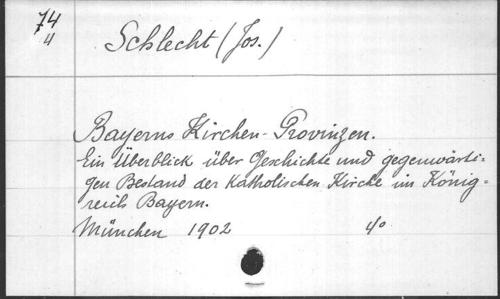 74
4
Schlecht (Jos.)
Bayerns Kirchen-Provinzen.
Ein Überblick über Geschichte und gegenwärti=
gen Bestand der Katholischen Kirche im König-
reich Bayern.
München 1902 4°